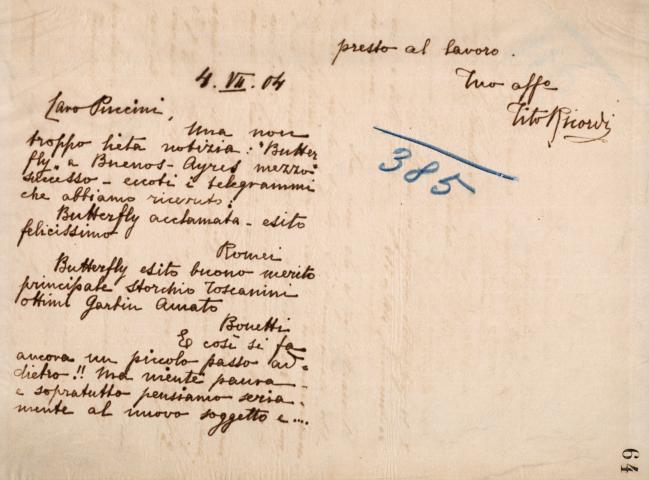 4. VII. 04
Caro Puccini,
Una non
troppo lieta notizia: "Butter
fly" a Buenos-Ayres mezzo
successo - eccoti i telegrammi
che abbiamo ricevuto:
Butterfly acclamata - esito
felicissimo
Romei
Butterfly esito buono merito
principale Storchio Toscanini
ottimi Garbin Amato
Bonetti
E così si fa
ancora un piccolo passo ad=
dietro!! Ma niente paura -
e sopratutto pensiamo seria-
mente al nuovo soggetto e ....
presto al lavoro.
Tuo affe
Tito Ricordi
385
64